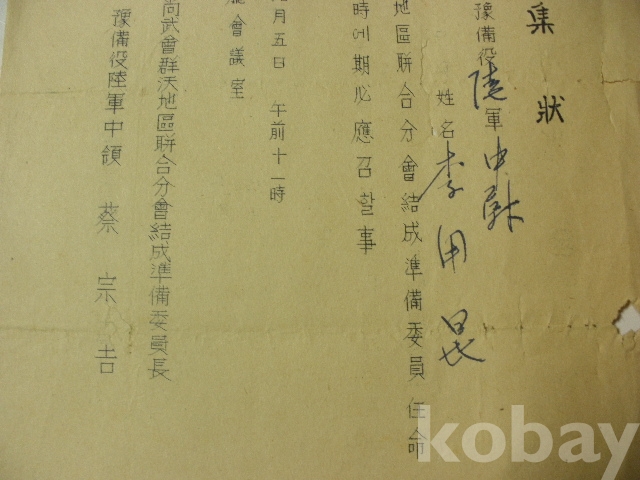 集狀
豫備役陸軍中尉
姓名 李用
地區聯合分會結成準備委員 任命
時에 期必應召할事
月五日 午前十一時
會議室
尚武會群沃地區聯合分會結成準備委員長
豫備役陸軍中領 蔡宗吉
kobay